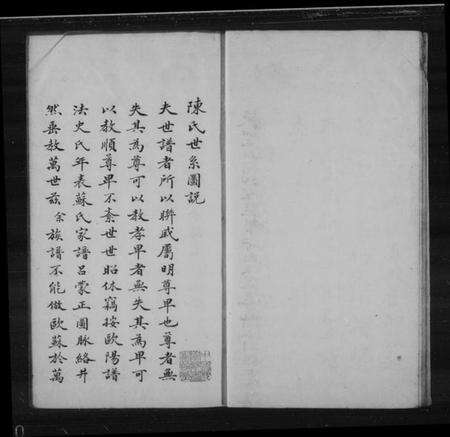 陳氏世系圖說
夫世譜者所以聯戚屬明尊卑也尊者無
失其為尊可以教孝卑者無失其為卑可
以教順尊卑不紊世世昭休竊按歐陽譜
法史氏年表蘇氏家譜呂蒙正圖脉絡井
然垂教萬世茲余族譜不能倣歐蘇於萬